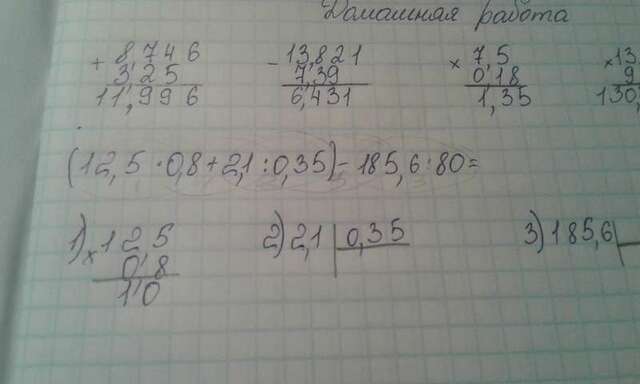 Домашняя работа
+ 8,746 - 13,821 × 7,5 × 13
3,25 7,39 0,18 9
11,996 6,431 1,35 130,
(12,5 · 0,8 + 2,1 : 0,35) - 185,6 : 80 =
1) × 125 2) 2,1 | 0,35 3) 185,6
0,8
10